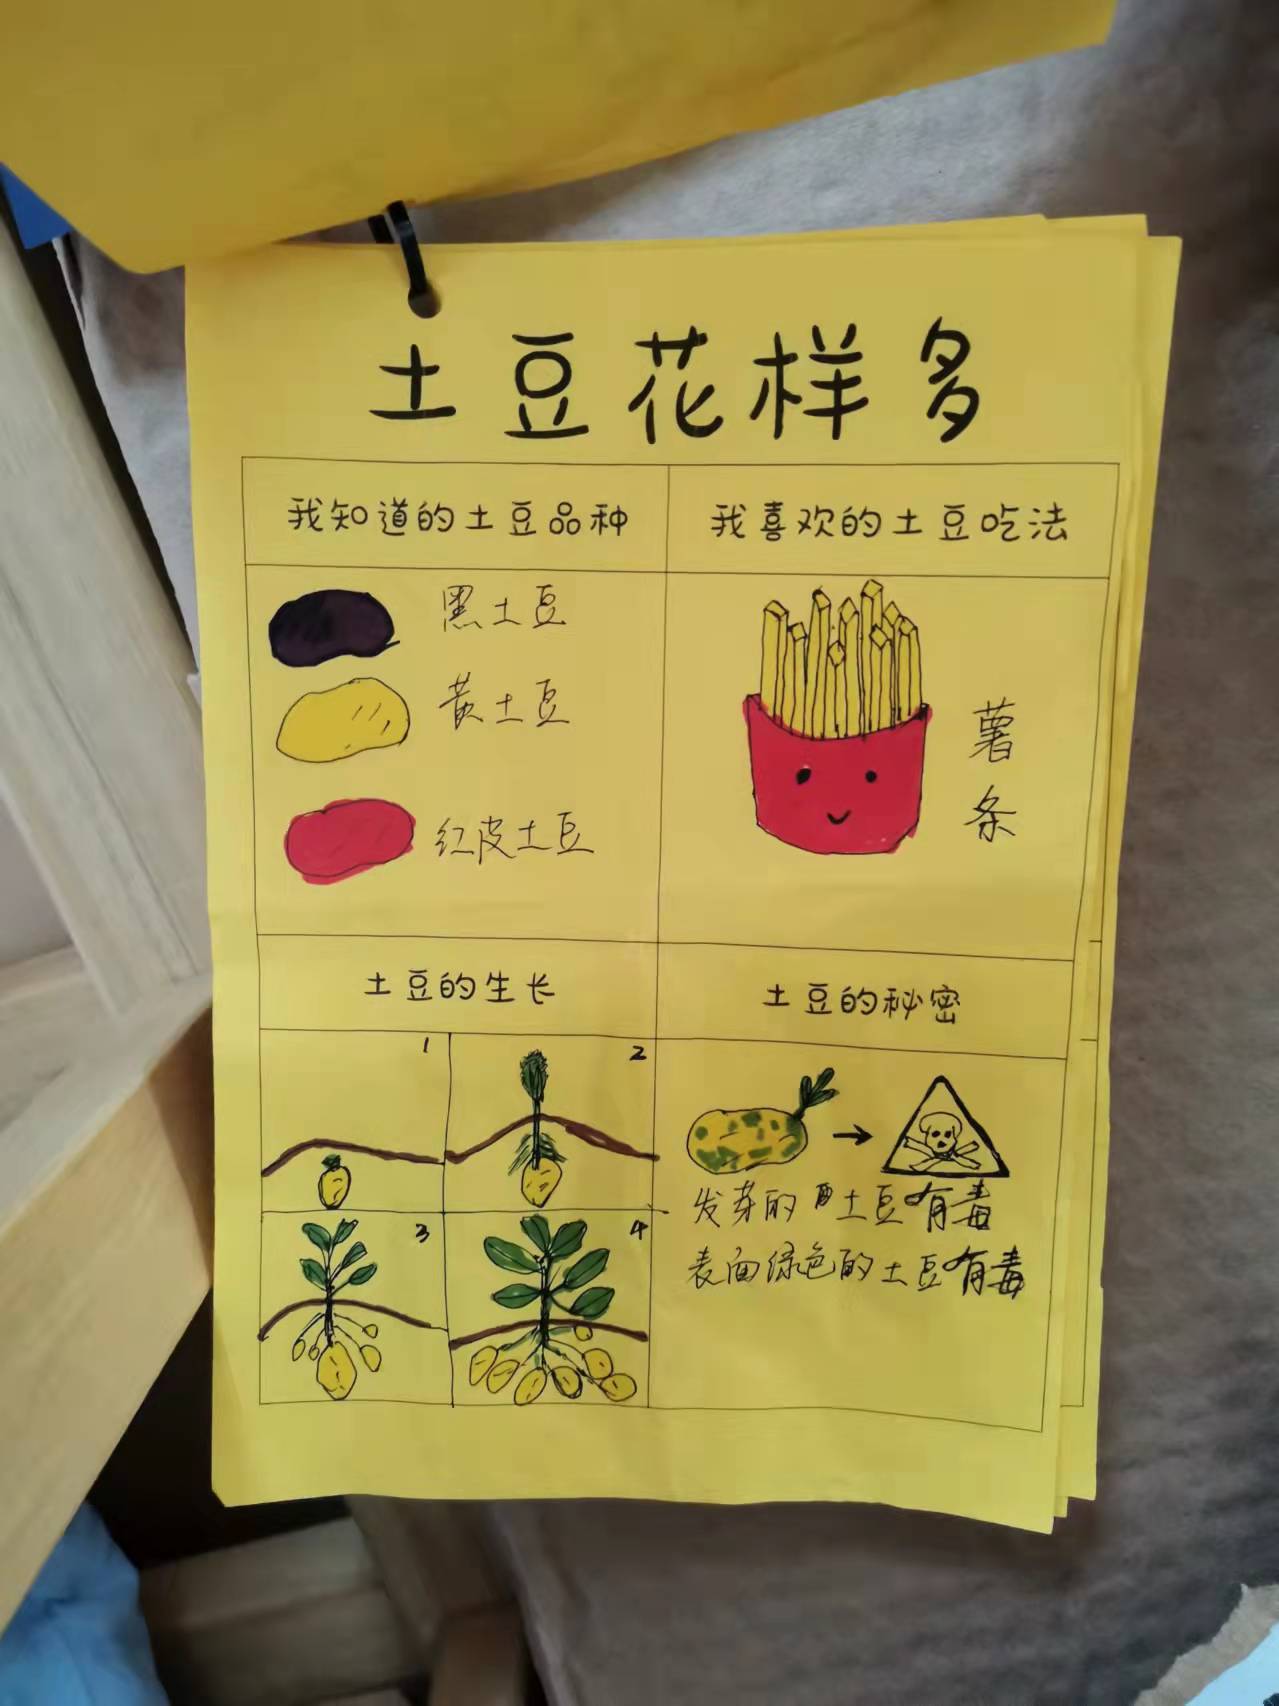 土豆花样多
我知道的土豆品种
我喜欢的土豆吃法
黑土豆
黄土豆
红皮土豆
薯条
土豆的生长
土豆的秘密
1
2
3
4
发芽的土豆有毒
表面绿色的土豆有毒